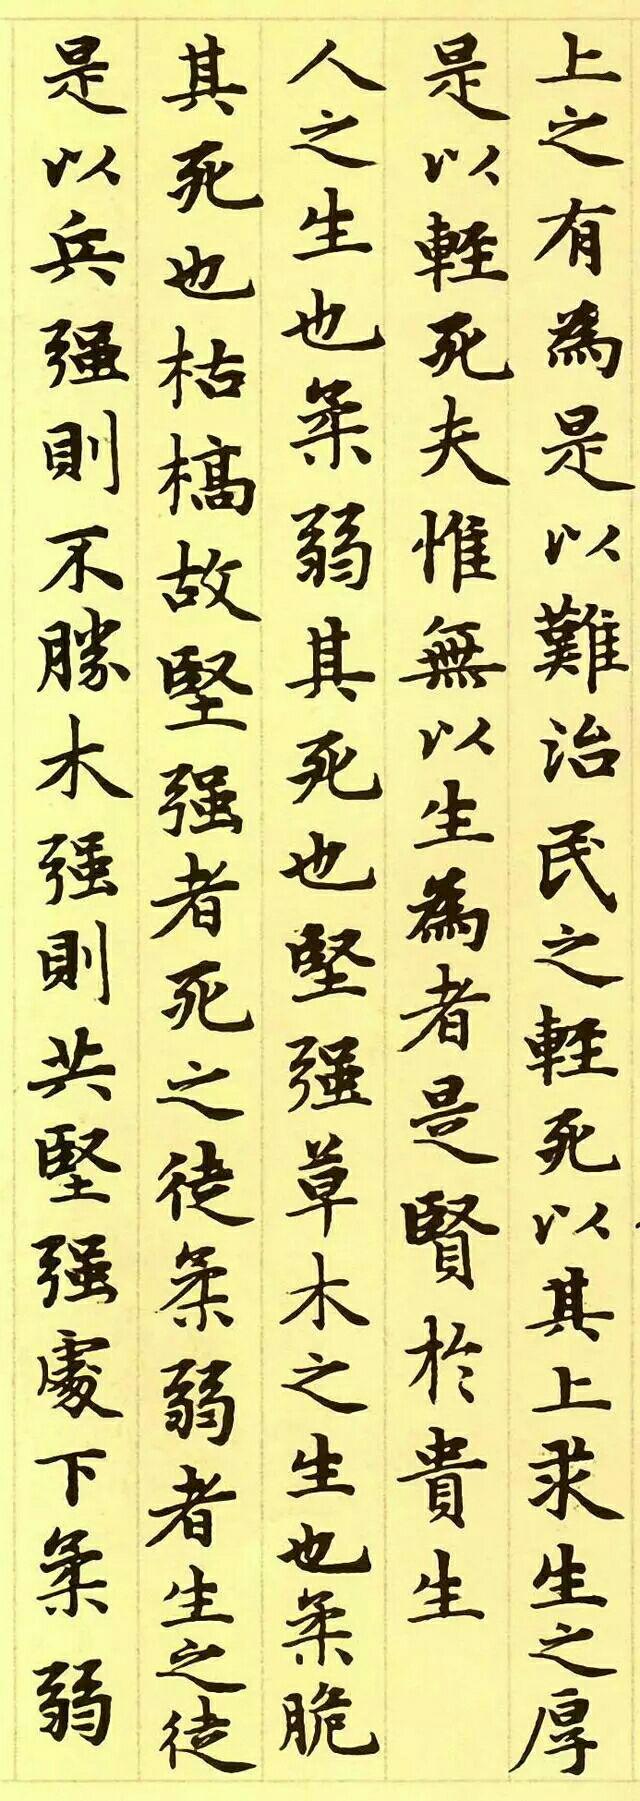 上之有為是以難治民之輕死以其上求生之厚
是以輕死夫惟無以生為者是賢於貴生
人之生也柔弱其死也堅强草木之生也柔脆
其死也枯槁故堅强者死之徒柔弱者生之徒
是以兵强則不勝木强則共堅强處下柔弱